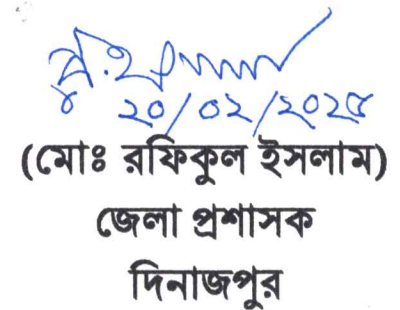 ২০/০২/২০২৫
(মোঃ রফিকুল ইসলাম)
জেলা প্রশাসক
দিনাজপুর